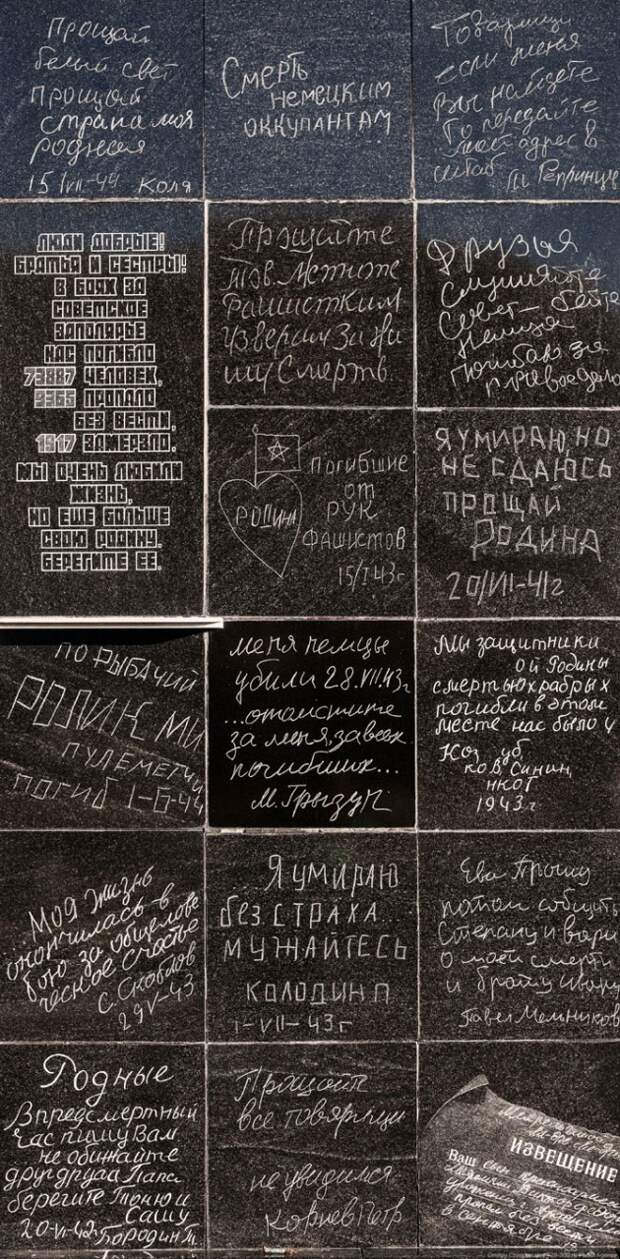 Прощай
белый свет
прощай
страна моя
родная
15/VII-44 Коля
Смерть
немецким
оккупантам
Товарищи
если меня
вы найдете
То передайте
мой адрес в
ЛЮДИ ДОБРЫЕ!
БРАТЬЯ И СЕСТРЫ!
В БОЯХ ЗА
СОВЕТСКОЕ
ЗАПОЛЯРЬЕ
НАС ПОГИБЛО
73887 ЧЕЛОВЕК,
ПРОПАЛО
БЕЗ ВЕСТИ,
1517 ЗАМЕРЗЛО.
МЫ ОЧЕНЬ ЛЮБИЛИ
ЖИЗНЬ,
НО ЕЩЕ БОЛЬШЕ
СВОЮ РОДИНУ.
БЕРЕГИТЕ ЕЕ.
Прощайте
тов.
Фашистким
Смерть
Друзья
слушайте
Совет – бейте
немца
погибаю за
правое дело
РОДИНА
Погибшие
от
РУК
фашистов
15/I 43г
Я УМИРАЮ, НО
НЕ СДАЮСЬ
ПРОЩАЙ
РОДИНА
20/VII-41г
ПО РЫБАЧИЙ
РОЛИК МИ
ПУЛЕМЕТЧИ
ПОГИБ 1-6-44
меня немцы
убили 28.VII.43г
...отомстите
за меня, за всех
погибших...
М. Грызун
Мы защитники
ой Родины
смертью храбрых
погибли в этом
месте нас было 4
Коз уб
ков, Синин,
нког
1943г
...Моя жизнь
окончилась в
бою за общелове
ческое счастье
с. Скоблов
29V-43
...Я УМИРАЮ
без СТРАХА...
МУЖАЙТЕСЬ
КОЛОДИН П
1-VII-43г
Ева Прошу
потом собщить
Степану и Вари
о моей смерти
и брату Ивану
Павел Мельников
Родные
В предсмертный
час пишу Вам
не обижайте
друг друга Папа
берегите Тоню и
Сашу
20-VI-42 Бородин Т.
Прощайте
все товарищи
не увидимся
Корнев Петр
ИЗВЕЩЕНИЕ
Ваш сын